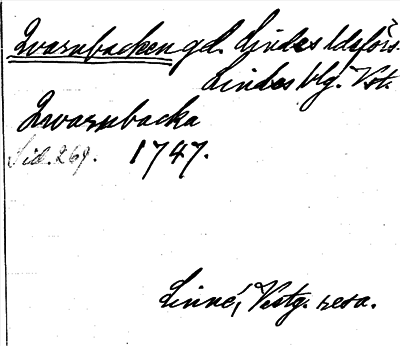 Qvarnbacken gd. Lindes ldsförs.
Lindes blg. Vst.
Qwarnbacka
Sid. 269. 1747.
Linné, Vestg. resa.